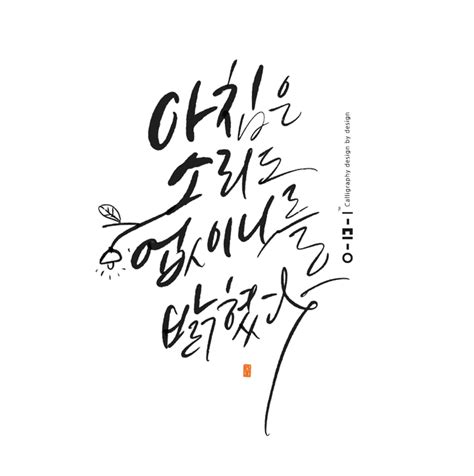 아침은
소리도
없이 나를
밝혔다
Calligraphy design by design